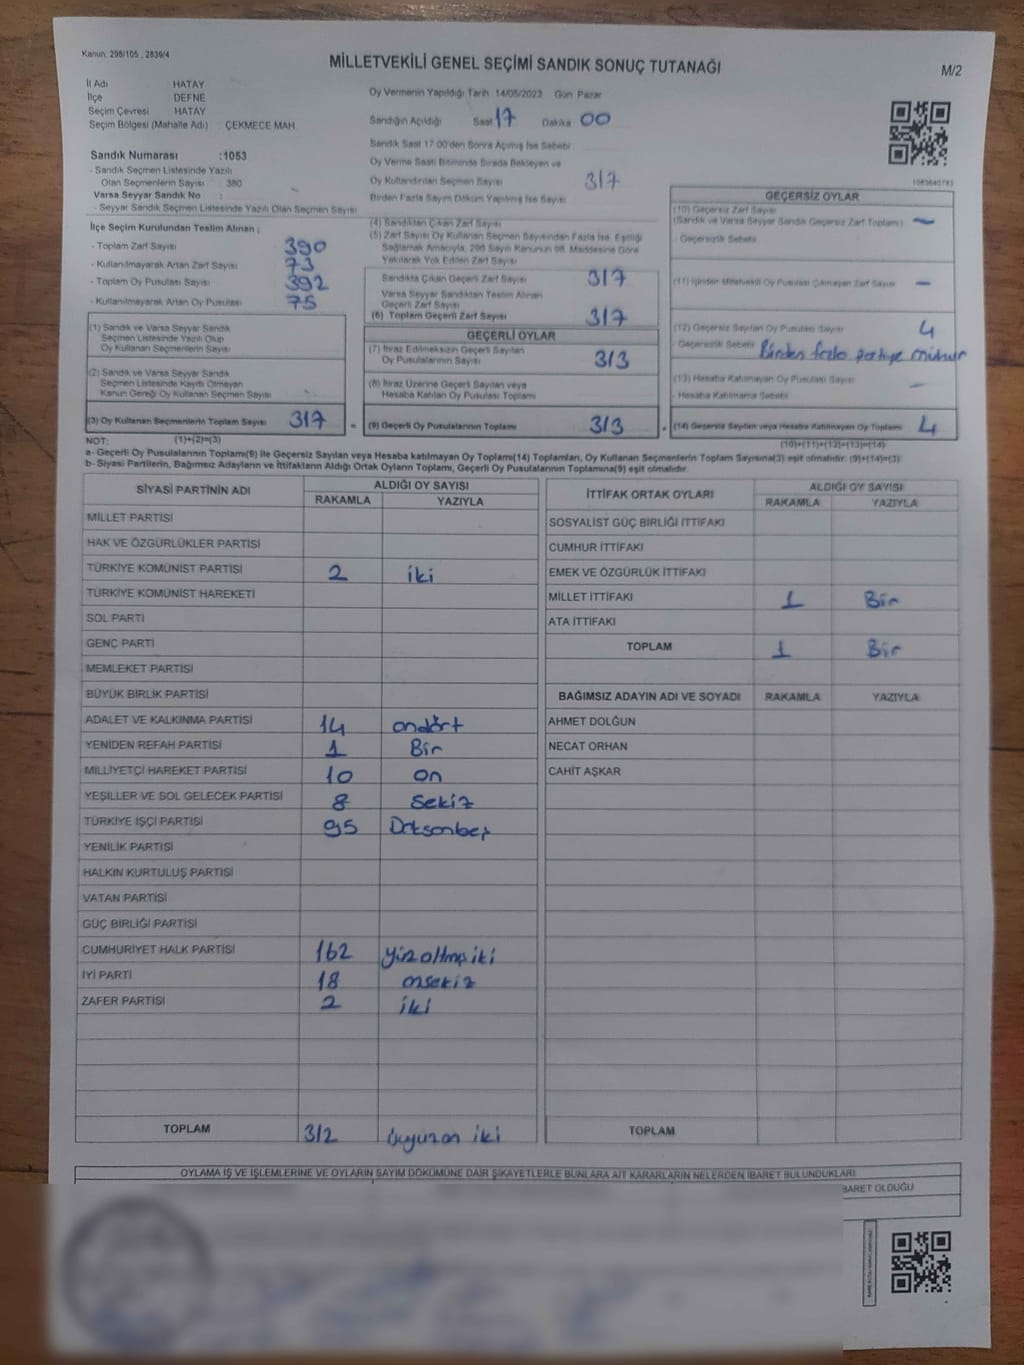 Kanun: 298/105 , 2839/4
MİLLETVEKİLİ GENEL SEÇİMİ SANDIK SONUÇ TUTANAĞI
M/2
İl Adı HATAY
İlçe DEFNE
Seçim Çevresi HATAY
Seçim Bölgesi (Mahalle Adı) : ÇEKMECE MAH
Sandık Numarası :1053
- Sandık Seçmen Listesinde Yazılı
Olan Seçmenlerin Sayısı : 380
Varsa Seyyar Sandık No :
- Seyyar Sandık Seçmen Listesinde Yazılı Olan Seçmen Sayısı
İlçe Seçim Kurulundan Teslim Alınan ;
- Toplam Zarf Sayısı 390
- Kullanılmayarak Artan Zarf Sayısı 73
- Toplam Oy Pusulası Sayısı 392
- Kullanılmayarak Artan Oy Pusulası 75
(1) Sandık ve Varsa Seyyar Sandık
Seçmen Listesinde Yazılı Olup
Oy Kullanan Seçmenlerin Sayısı
(2) Sandık ve Varsa Seyyar Sandık
Seçmen Listesinde Kayıtlı Olmayan
Kanun Gereği Oy Kullanan Seçmen Sayısı
(3) Oy Kullanan Seçmenlerin Toplam Sayısı 317
Oy Vermenin Yapıldığı Tarih 14/05/2023 Gün Pazar
Sandığın Açıldığı Saat 17 Dakika 00
Sandık Saat 17.00'den Sonra Açılmış İse Sebebi
Oy Verme Saati Bitiminde Sırada Bekleyen ve
Oy Kullandırılan Seçmen Sayısı 317
Birden Fazla Sayım Döküm Yapılmış İse Sayısı
(4) Sandıktan Çıkan Zarf Sayısı
(5) Zarf Sayısı Oy Kullanan Seçmen Sayısından Fazla İse, Eşitliği
Sağlamak Amacıyla, 298 Sayılı Kanunun 98. Maddesine Göre
Yakılarak Yok Edilen Zarf Sayısı
Sandıkta Çıkan Geçerli Zarf Sayısı 317
Varsa Seyyar Sandıktan Teslim Alınan
Geçerli Zarf Sayısı
(6) Toplam Geçerli Zarf Sayısı 317
GEÇERLİ OYLAR
(7) İtiraz Edilmeksizin Geçerli Sayılan
Oy Pusulalarının Sayısı 313
(8) İtiraz Üzerine Geçerli Sayılan veya
Hesaba Katılan Oy Pusulası Toplamı
= (9) Geçerli Oy Pusulalarının Toplamı 313
GEÇERSİZ OYLAR
(10) Geçersiz Zarf Sayısı
(Sandık ve Varsa Seyyar Sandık Geçersiz Zarf Toplamı) -
- Geçersizlik Sebebi
(11) İçinden Milletvekili Oy Pusulası Çıkmayan Zarf Sayısı -
(12) Geçersiz Sayılan Oy Pusulası Sayısı 4
- Geçersizlik Sebebi Birden fazla partiye mühür
(13) Hesaba Katılmayan Oy Pusulası Sayısı -
- Hesaba Katılmama Sebebi
(14) Geçersiz Sayılan veya Hesaba Katılmayan Oy Toplamı 4
NOT: (1)+(2)=(3)
(10)+(11)+(12)+(13)=(14)
a- Geçerli Oy Pusulaları Toplam(9) ile Geçersiz Sayılan veya Hesaba katılmayan Oy Toplamı(14) Toplamları, Oy Kullanan Seçmenlerin Toplam Sayısına(3) eşit olmalıdır. (9)+(14)=(3)
b- Siyasi Partilerin, Bağımsız Adayların ve İttifakların Aldığı Ortak Oyların Toplamı, Geçerli Oy Pusulalarının Toplamına(9) eşit olmalıdır.
SİYASİ PARTİNİN ADI ALDIĞI OY SAYISI
RAKAMLA YAZIYLA
MİLLET PARTİSİ
HAK VE ÖZGÜRLÜKLER PARTİSİ
TÜRKİYE KOMÜNİST PARTİSİ 2 iki
TÜRKİYE KOMÜNİST HAREKETİ
SOL PARTİ
GENÇ PARTİ
MEMLEKET PARTİSİ
BÜYÜK BİRLİK PARTİSİ
ADALET VE KALKINMA PARTİSİ 14 ondört
YENİDEN REFAH PARTİSİ 1 Bir
MİLLİYETÇİ HAREKET PARTİSİ 10 on
YEŞİLLER VE SOL GELECEK PARTİSİ 8 sekiz
TÜRKİYE İŞÇİ PARTİSİ 95 Doksanbeş
YENİLİK PARTİSİ
HALKIN KURTULUŞ PARTİSİ
VATAN PARTİSİ
GÜÇ BİRLİĞİ PARTİSİ
CUMHURİYET HALK PARTİSİ 162 yüzaltmışiki
İYİ PARTİ 18 onsekiz
ZAFER PARTİSİ 2 iki
TOPLAM 312 üçyüzon iki
İTTİFAK ORTAK OYLARI ALDIĞI OY SAYISI
RAKAMLA YAZIYLA
SOSYALİST GÜÇ BİRLİĞİ İTTİFAKI
CUMHUR İTTİFAKI
EMEK VE ÖZGÜRLÜK İTTİFAKI
MİLLET İTTİFAKI 1 Bir
ATA İTTİFAKI
TOPLAM 1 Bir
BAĞIMSIZ ADAYIN ADI VE SOYADI RAKAMLA YAZIYLA
AHMET DOLĞUN
NECAT ORHAN
CAHİT AŞKAR
TOPLAM
OYLAMA İŞ VE İŞLEMLERİNE VE OYLARIN SAYIM DÖKÜMÜNE DAİR ŞİKAYETLERLE BUNLARA AİT KARARLARIN NELERDEN İBARET BULUNDUKLARI
BARET OLDUĞU